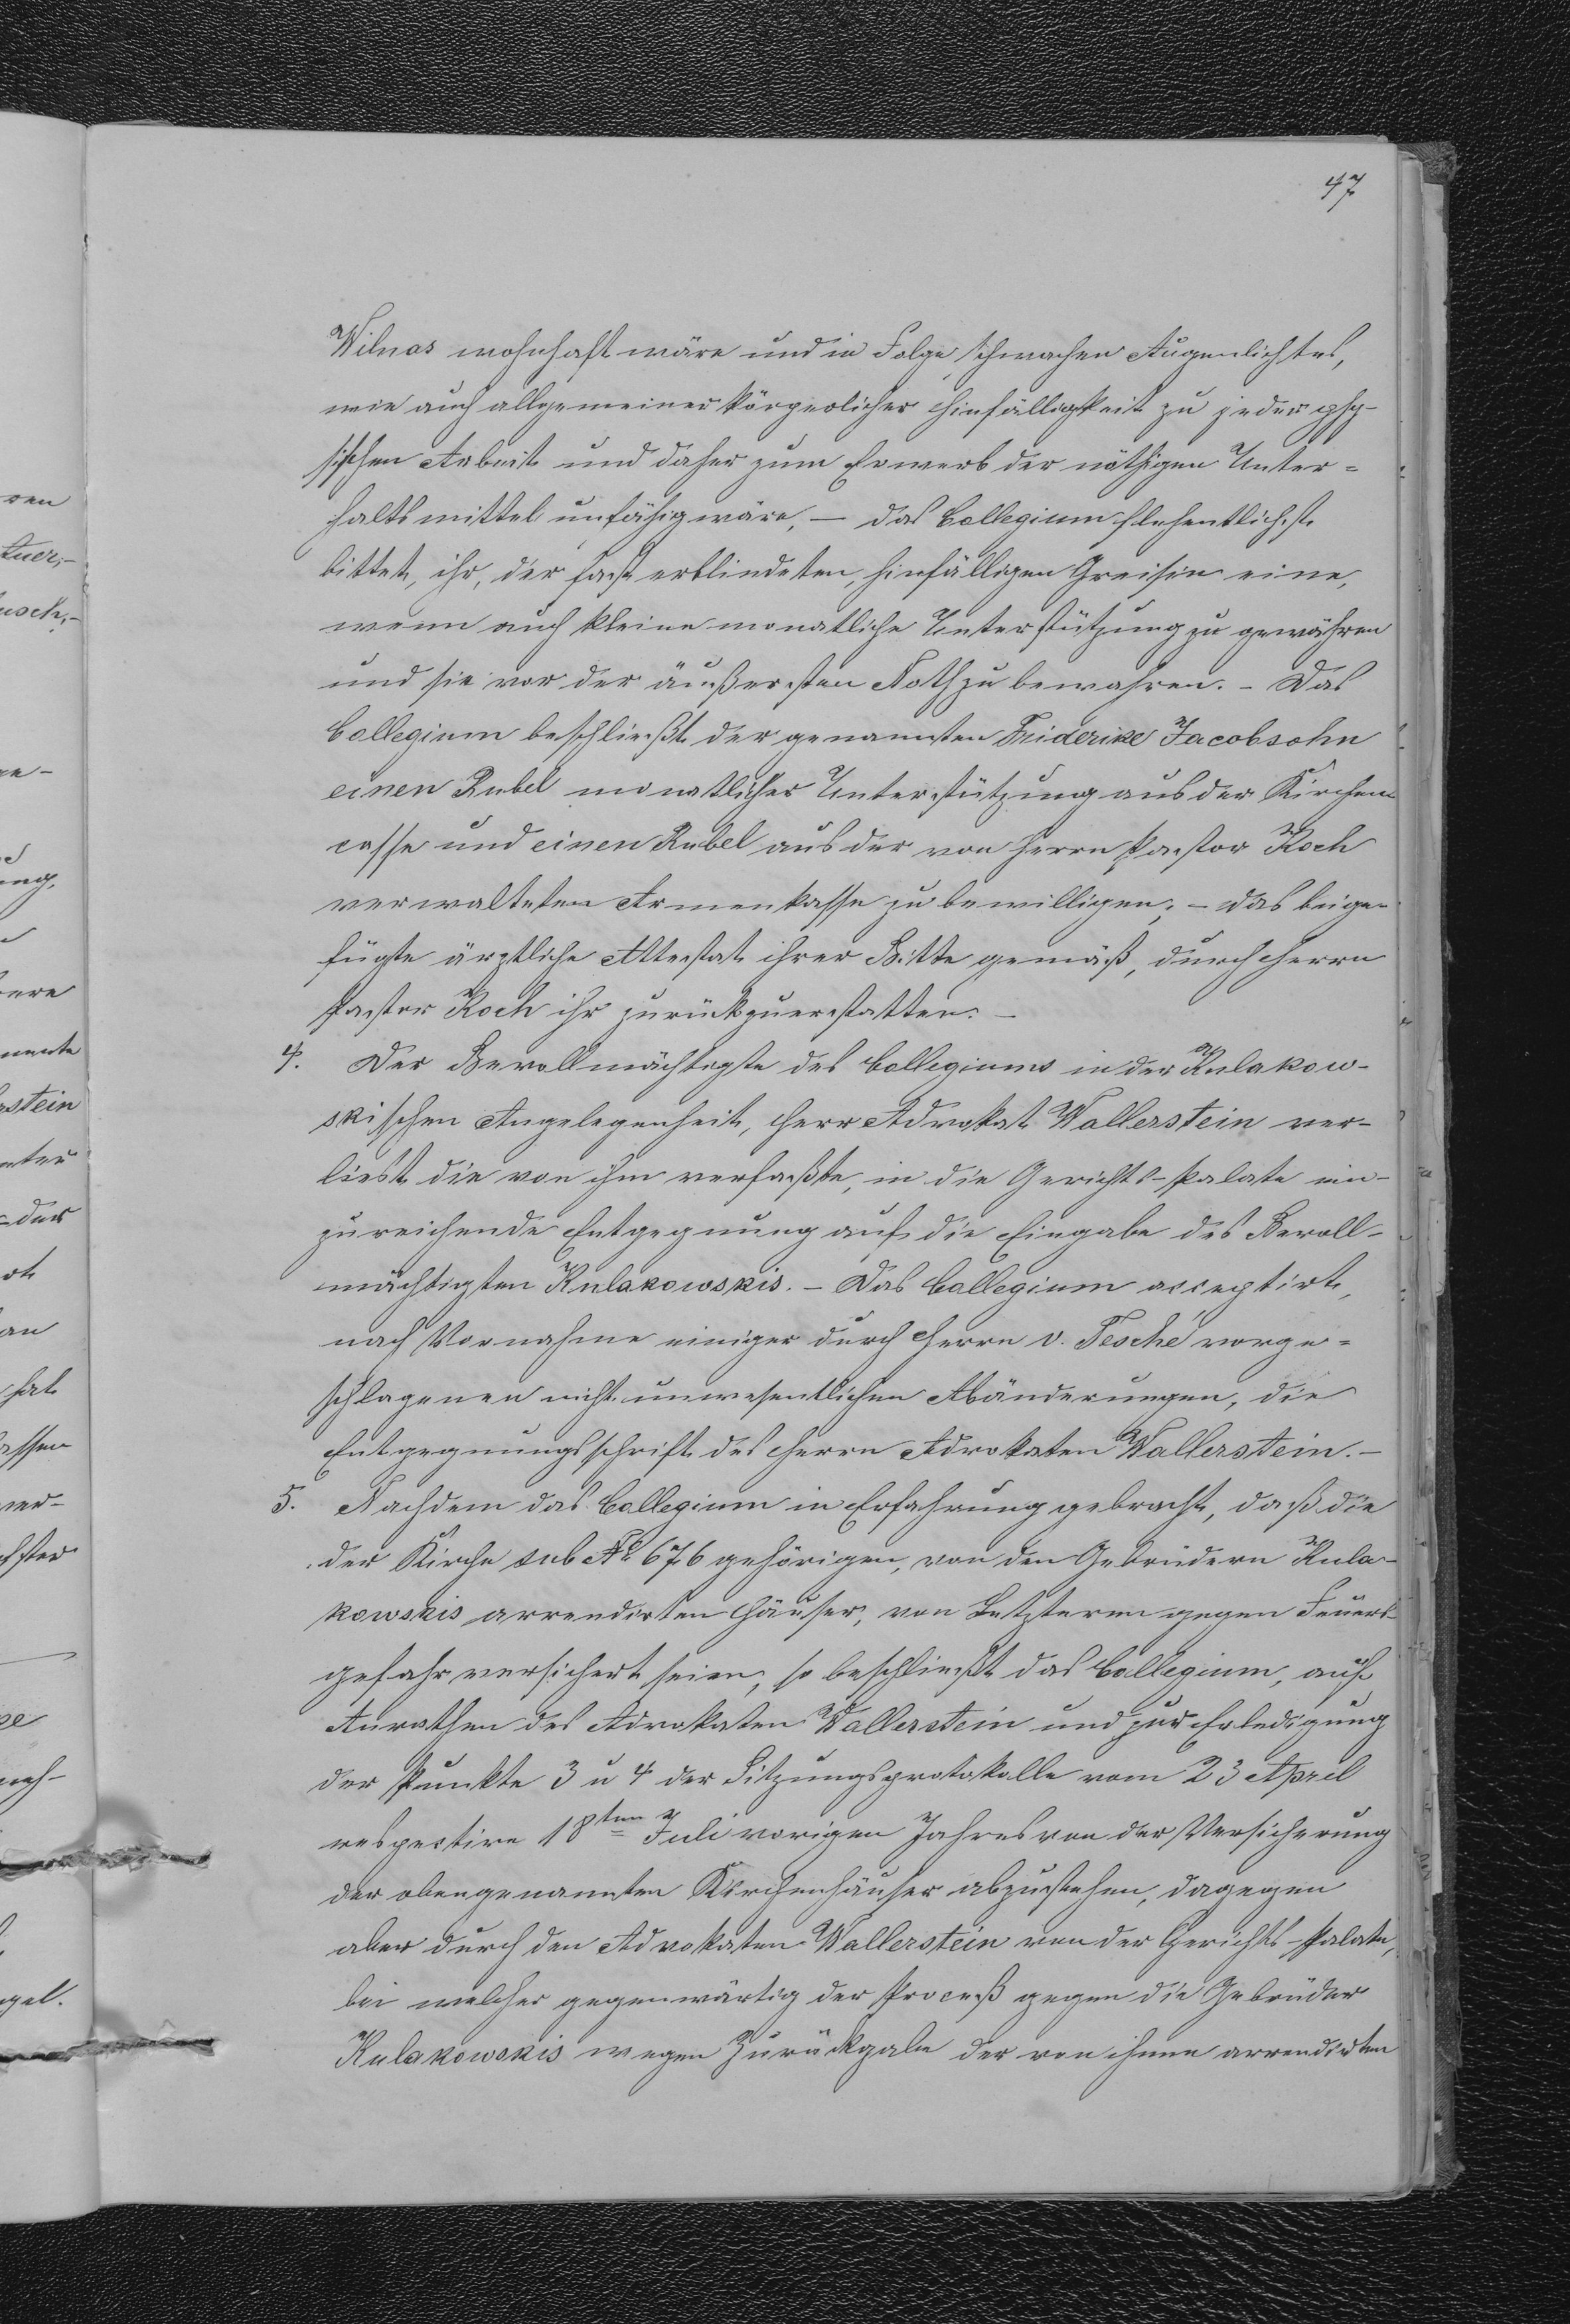 47
Wilnas wohnhaft wäre und in Folge schwachen Augenlichtes,
wie auch allgemeiner körperlicher Hinfälligkeit zu jeder phy-
sischen Arbeit und daher zum Erwerb der nöthigen Unter=
haltsmittel unfähig wäre, — das Collegium flehentlichst
bittet, ihr, der fast erblindeten, hinfälligen Greisin eine,
wenn auch kleine monatliche Unterstützung zu gewähren
und sie vor der äußersten Noth zu bewahren. – Das
Collegium beschließt der genannten Friderike Jacobsohn
einen Rubel monatlicher Unterstützung aus der Kirchen
casse und einen Rubel aus der von Herrn Pastor Koch
verwalteten Armenkasse zu bewilligen; – das beige-
fügte ärztliche Attestat ihrer Bitte gemäß, durch Herrn
Pastor Koch ihr zurückzuerstatten. –
4. Der Bevollmächtigte des Collegiums in der Kulakow-
skischen Angelegenheit, Herr Advokat Wallerstein ver-
liest die von ihm verfaßte, in die Gerichts-Palate ein-
zureichende Entgegnung auf die Eingabe des Bevoll-
mächtigten Kulakowskis. – Das Collegium acceptirt,
nach Vornahme einiger durch Herrn v. Tesché vorge=
schlagenen nicht unwesentlichen Abänderungen, die
Entgegnungsschrift des Herrn Advokaten Wallerstein. –
5. Nachdem das Collegium in Erfahrung gebracht, daß die
der Kirche sub № 676 gehörigen, von den Gebrüdern Kula-
kowskis arrendirten Häuser, von Letzteren gegen Feuers-
gefahr versichert seien, so beschließt das Collegium, auf
Anrathen des Advokaten Wallerstein und zur Erledigung
der Punkte 3 u 4 der Sitzungsprotokolle vom 23 April
respective 18ten Juli vorigen Jahres von der Versicherung
der obengenannten Kirchenhäuser abzustehen, dagegen
aber durch den Advokaten Wallerstein von der Gerichts-Palate,
bei welcher gegenwärtig der Proceß gegen die Gebrüder
Kulakowskis wegen Zurückgabe der von ihnen arrendirten